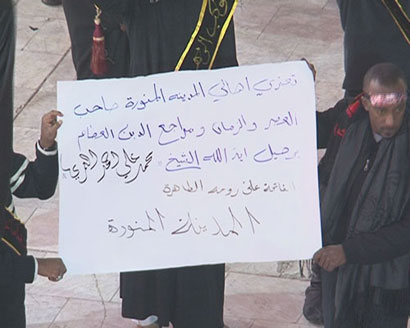 تعزي اهالي المدينه المنورة صاحب
العصر والزمان ومراجع الدين العظام
برحيل اية الله الشيخ محمد علي العمري
الفاتحة على روحه الطاهرة
المدينة المنورة